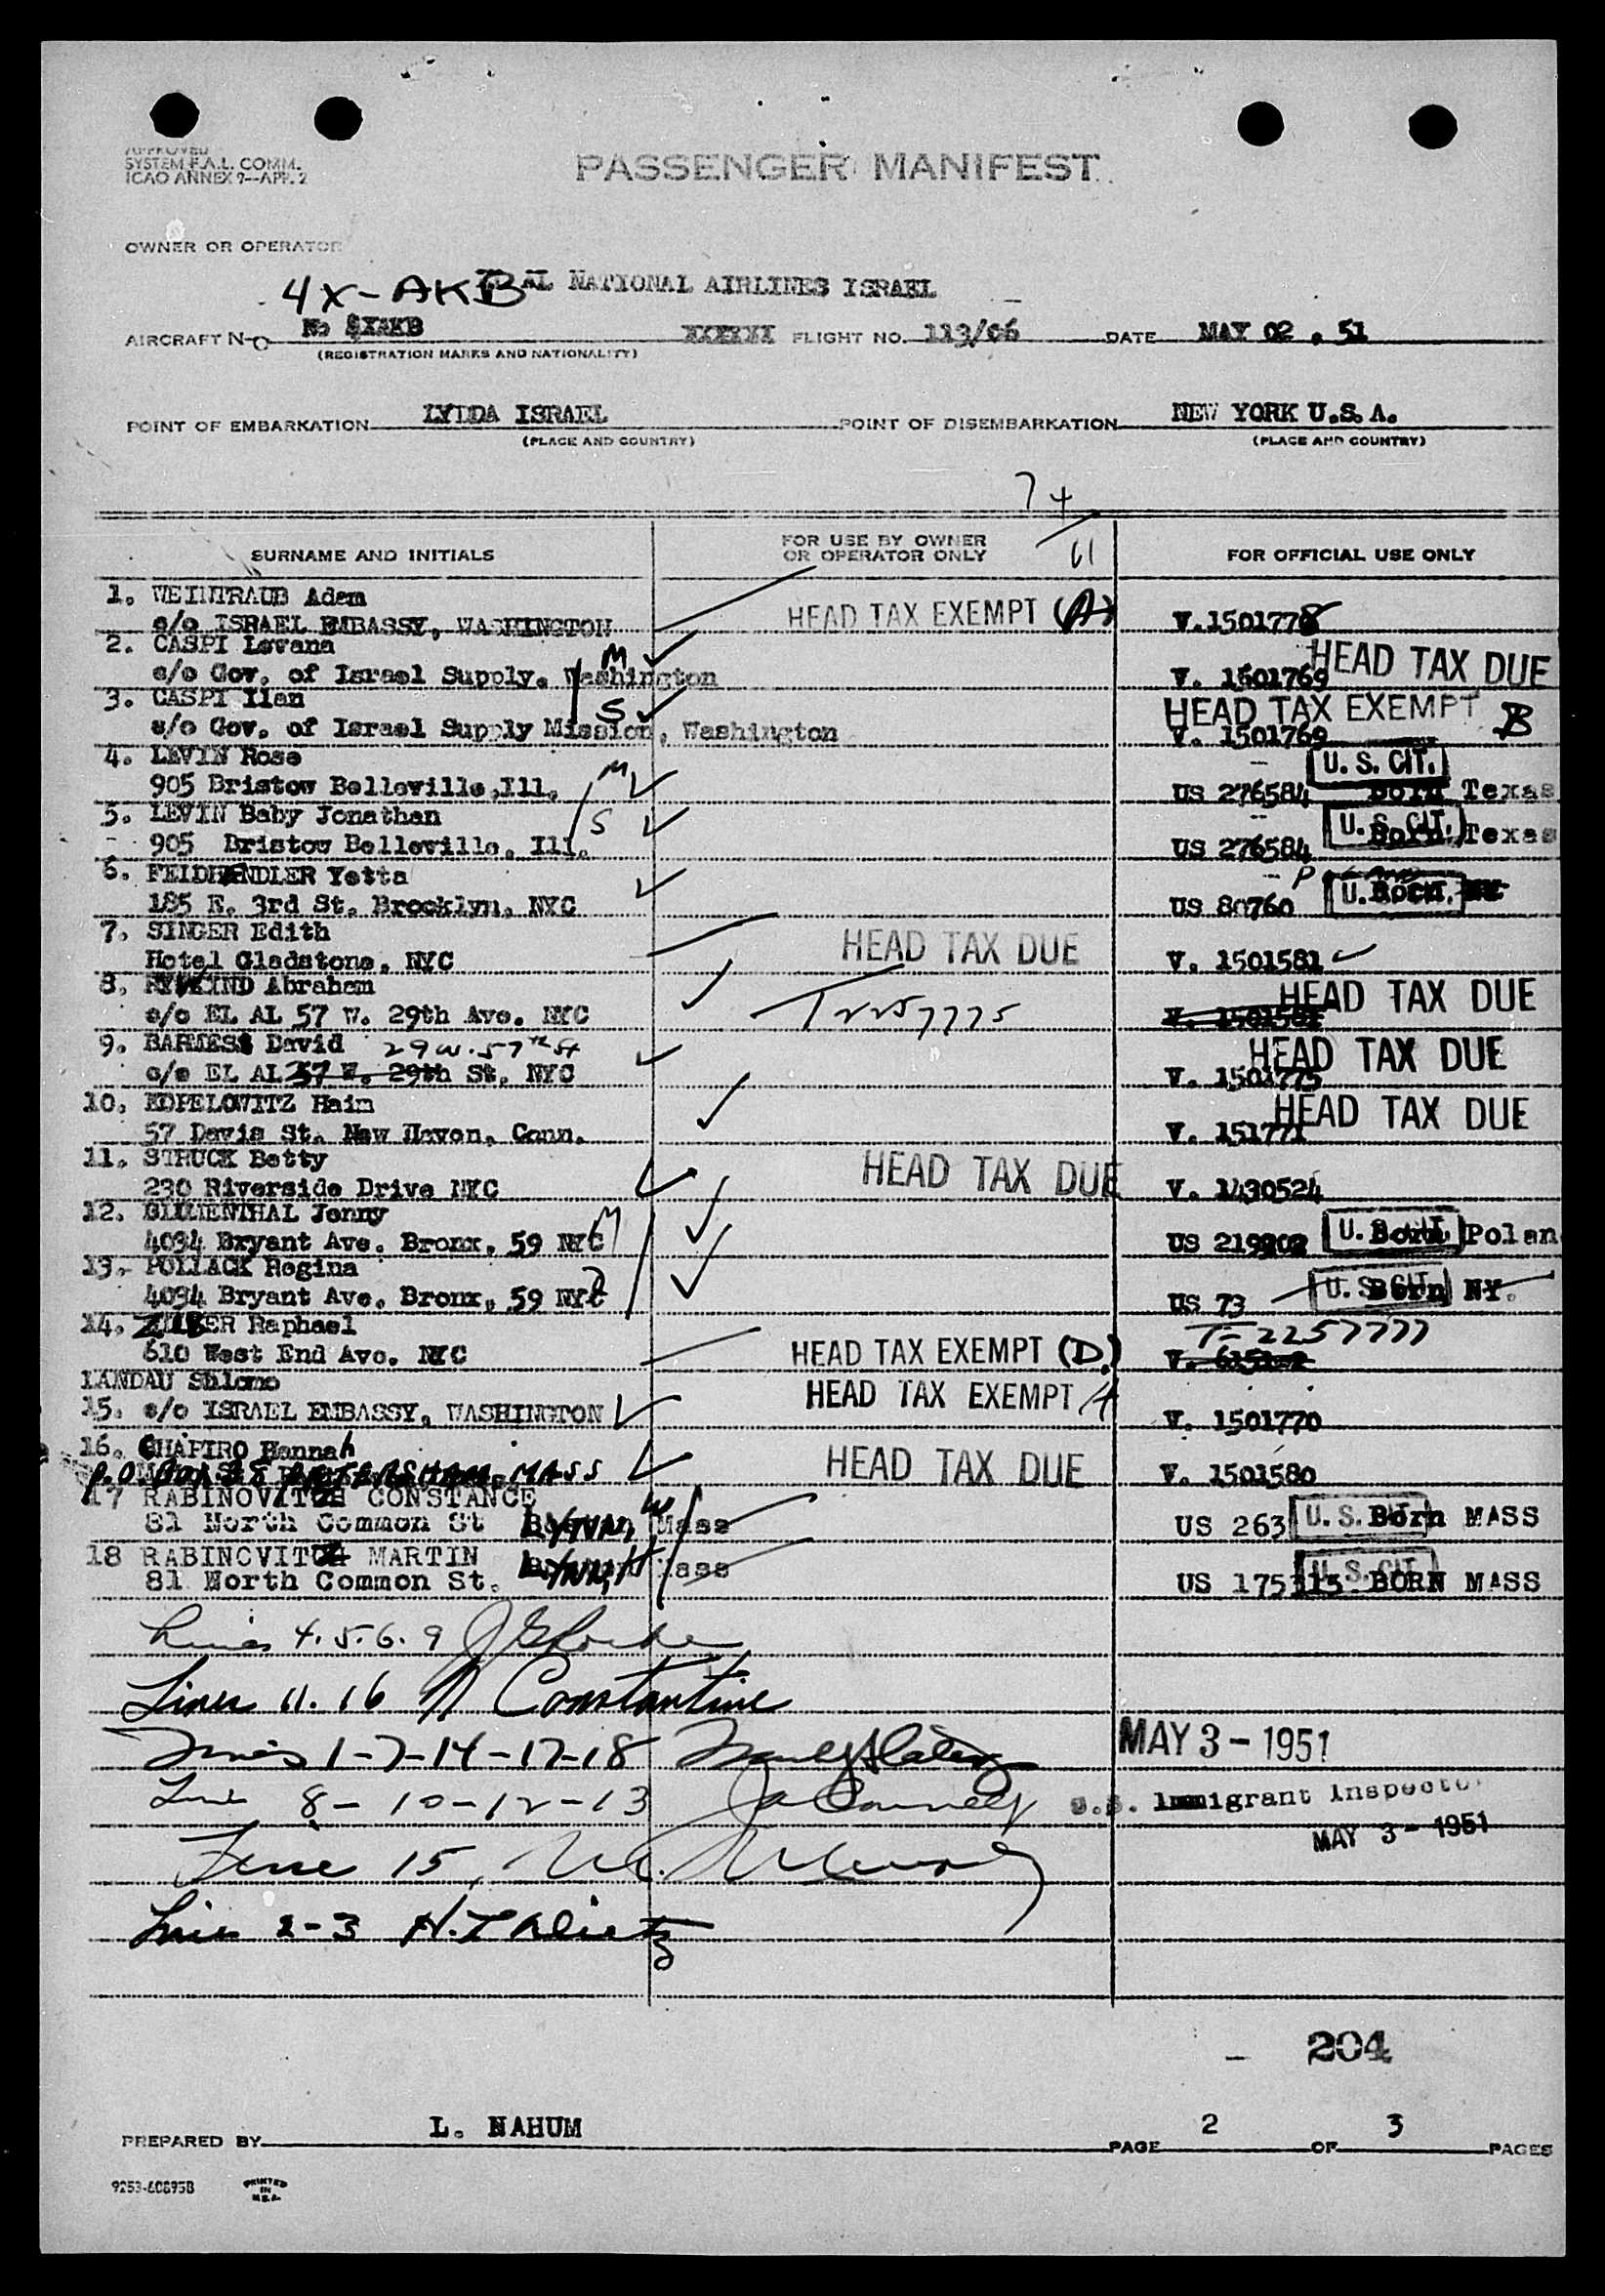 APPROVED
SYSTEM F.A.L. COMM.
ICAO ANNEX 9—APP. 2
PASSENGER MANIFEST
OWNER OR OPERATOR
4X-AKB AL NATIONAL AIRLINES ISRAEL
AIRCRAFT No No 4X AKB XXXXXX FLIGHT NO. 113/06 DATE MAY 02 . 51
(REGISTRATION MARKS AND NATIONALITY)
POINT OF EMBARKATION LYDDA ISRAEL POINT OF DISEMBARKATION NEW YORK U.S.A.
(PLACE AND COUNTRY) (PLACE AND COUNTRY)
74
61
SURNAME AND INITIALS FOR USE BY OWNER OR OPERATOR ONLY FOR OFFICIAL USE ONLY
1. WEINTRAUB Adam
c/o ISRAEL EMBASSY, WASHINGTON HEAD TAX EXEMPT (A) V.1501778
2. CASPI Levana M
c/o Gov. of Israel Supply. Washington V. 1501769 HEAD TAX DUE
3. CASPI Ilan S HEAD TAX EXEMPT B
c/o Gov. of Israel Supply Mission, Washington V. 1501769
4. LEVIN Rose M U. S. CIT.
905 Bristow Belleville,Ill. US 276584 Born Texas
5. LEVIN Baby Jonathan S U. S. CIT.
905 Bristow Belleville, Ill. US 276584 Born Texas
6. FELDHENDLER Yetta
185 E. 3rd St. Brooklyn, NYC US 80760
7. SINGER Edith
Hotel Gladstone, NYC HEAD TAX DUE V. 1501581
8. RYWKIND Abraham HEAD TAX DUE
c/o EL AL 57 W. 29th Ave. NYC T2257775 V. 1501581
9. BARMESS David 29 W. 57th St HEAD TAX DUE
c/o EL AL 57 W. 29th St. NYC V. 1501775
10. KOPELOWITZ Haim HEAD TAX DUE
57 Davis St. New Haven, Conn. V. 151771
11. STRUCK Betty
230 Riverside Drive NYC HEAD TAX DUE V. 1430524
12. BLUMENTHAL Jenny M
4034 Bryant Ave. Bronx, 59 NYC US 219202 Born Polan
13. POLLACK Regina
4034 Bryant Ave. Bronx, 59 NYC US 73 U. S. CIT. Born NY.
14. ZILBER Raphael T-2257777
610 West End Ave. NYC HEAD TAX EXEMPT (D)
LANDAU Shlomo HEAD TAX EXEMPT A
15. c/o ISRAEL EMBASSY, WASHINGTON V. 1501770
16. SHAPIRO Hannah
P.O. BOX 35 PETERSHAM, MASS HEAD TAX DUE V. 1501580
17 RABINOVITCH CONSTANCE W
81 North Common St LYNN, Mass US 263 U. S. CIT. Born MASS
18 RABINOVITCH MARTIN
81 North Common St. LYNN, H Mass US 175315 U. S. CIT. BORN MASS
Lines 4.5.6.9
Lines 11.16 N Constantine
Lines 1-7-14-17-18 MAY 3 - 1951
Line 8-10-12-13 U.S. Immigrant Inspector
MAY 3 - 1951
Line 15,
Lines 2-3
204
PREPARED BY L. NAHUM PAGE 2 OF 3 PAGES
9253-60895B PRINTED IN U.S.A.